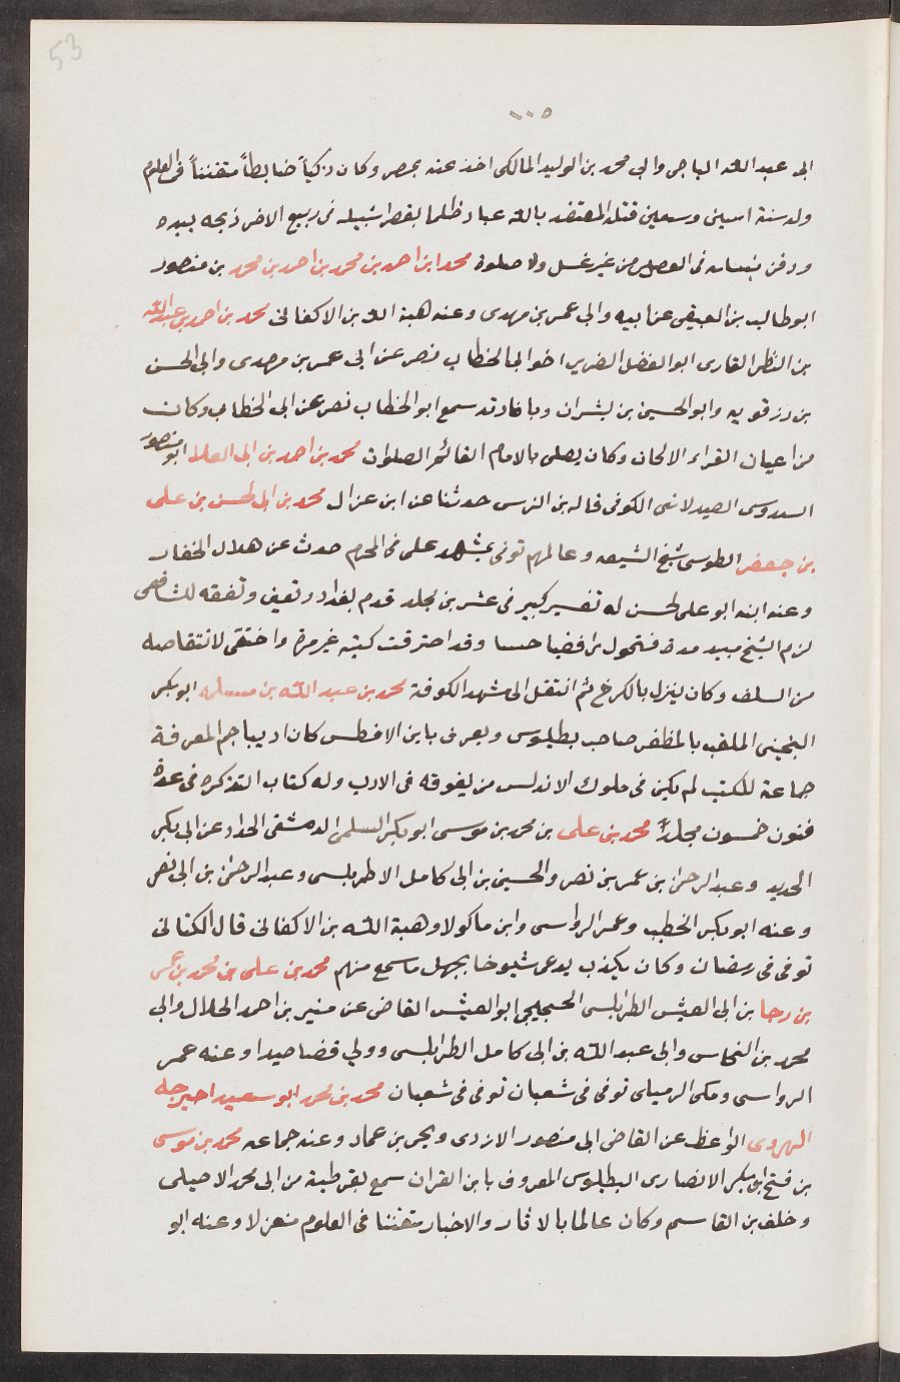 53
١٠٥
ابى عبد الله الباجى وابى محمد بن الوليد المالكى اخذ عنه بمصر وكان ذكياً ضابطاً متفنناً فى العلوم
ولد سنة اسين وسعين قتله المعتضد بالله عباد ظلما بقصر اشبيله فى ربيع الاخر ذبحه بيده
ودفن بثيابه فى القصر من غير غسل ولا صلوة محمد ابن احمد بن محمد بن احمد بن محمد بن منصور
ابو طالب بن العتيقى عن ابيه وابى عمر بن مهدى وعنه هبة الله بن الاكفانى محمد بن احمد بن عبد الله
بن النظر القارى ابو الفضل الضرير اخو ابى الخطاب نصر عن ابى عمر بن مهدى وابى الحسن
بن رزقويه وابو الحسين بن بشران وبافادته سمع ابو الخطاب نصر عن ابى الخطاب وكان
من اعيان القراء الالحان وكان يصلى بالامام القائم الصلوات محمد بن احمد بن ابى العلا ابو منصور
السدوسى الصيدلانى الكوفى قاله بن النرسى حدثنا عن ابن غزال محمد بن ابى الحسن بن على
بن جعفر الطوسى شيخ الشيعه وعالمهم توفى بمشهد على فى المحرم حدث عن هلال الحفار
وعنه ابنه ابو على الحسن له تفسير كبير فى عشرين مجلد قدم بغداد وتعين وتفقه للشافعى
لزم الشيخ مبيد مدة فتحول رافضيا وقد احترقت كتبه غير مرة واختفى لانتقاصه
من السلف وكان ينزل بالكرخ ثم انتقل الى مشهد الكوفة محمد بن عبد الله بن مسلمه ابو بكر
التجيبى الملقب بالمظفر صاحب بطليوس ويعرف بابن الافطس كان اديبا جم المعرفة
جماعة للكتب لم يكن فى ملوك الاندلس من يفوقه فى الادب وله كتاب التذكره فى عدة
فنون خمسون مجلداً محمد بن على بن محمد بن موسى ابو بكر السلمى الدمشقى الحداد عن ابى بكر
الحديد وعبد الرحمن بن عمر بن نصر والحسين بن ابى كامل الاطرابلسى وعبد الرحمن بن ابى نصر
وعنه ابو بكر الخطيب وعمر الرواسى وابن ماكولا وهبة الله بن الاكفانى قال الكتانى
توفى فى رمضان وكان يكذب يدعى شيوخا بجهل ما سمع منهم محمد بن على بن محمد بن عمر
بن رجا بن ابى العيش الطرابلسى ابو العيش القاضى عن منير بن احمد الخلال وابى
محمد بن النحاس وابى عبد الله بن ابى كامل الطرابلسى وولى قضا صيدا وعنه عمر
الرواسى ومكى الرميلى توفى فى شعبان توفى فى شعبان محمد بن محمد ابو سعيد
الهروى الواعظ عن القاضى ابى منصور الازدى ويحى بن عماد وعنه جماعه محمد بن موسى
بن فتح ابو بكر الانصارى البطليوسى المعروف بابن القران سمع بقرطبة من ابى محمد الاصيلى
وخلف بن القاسم وكان عالما بالاثار والاخبار متفننا فى العلوم منعزلا وعنه ابو